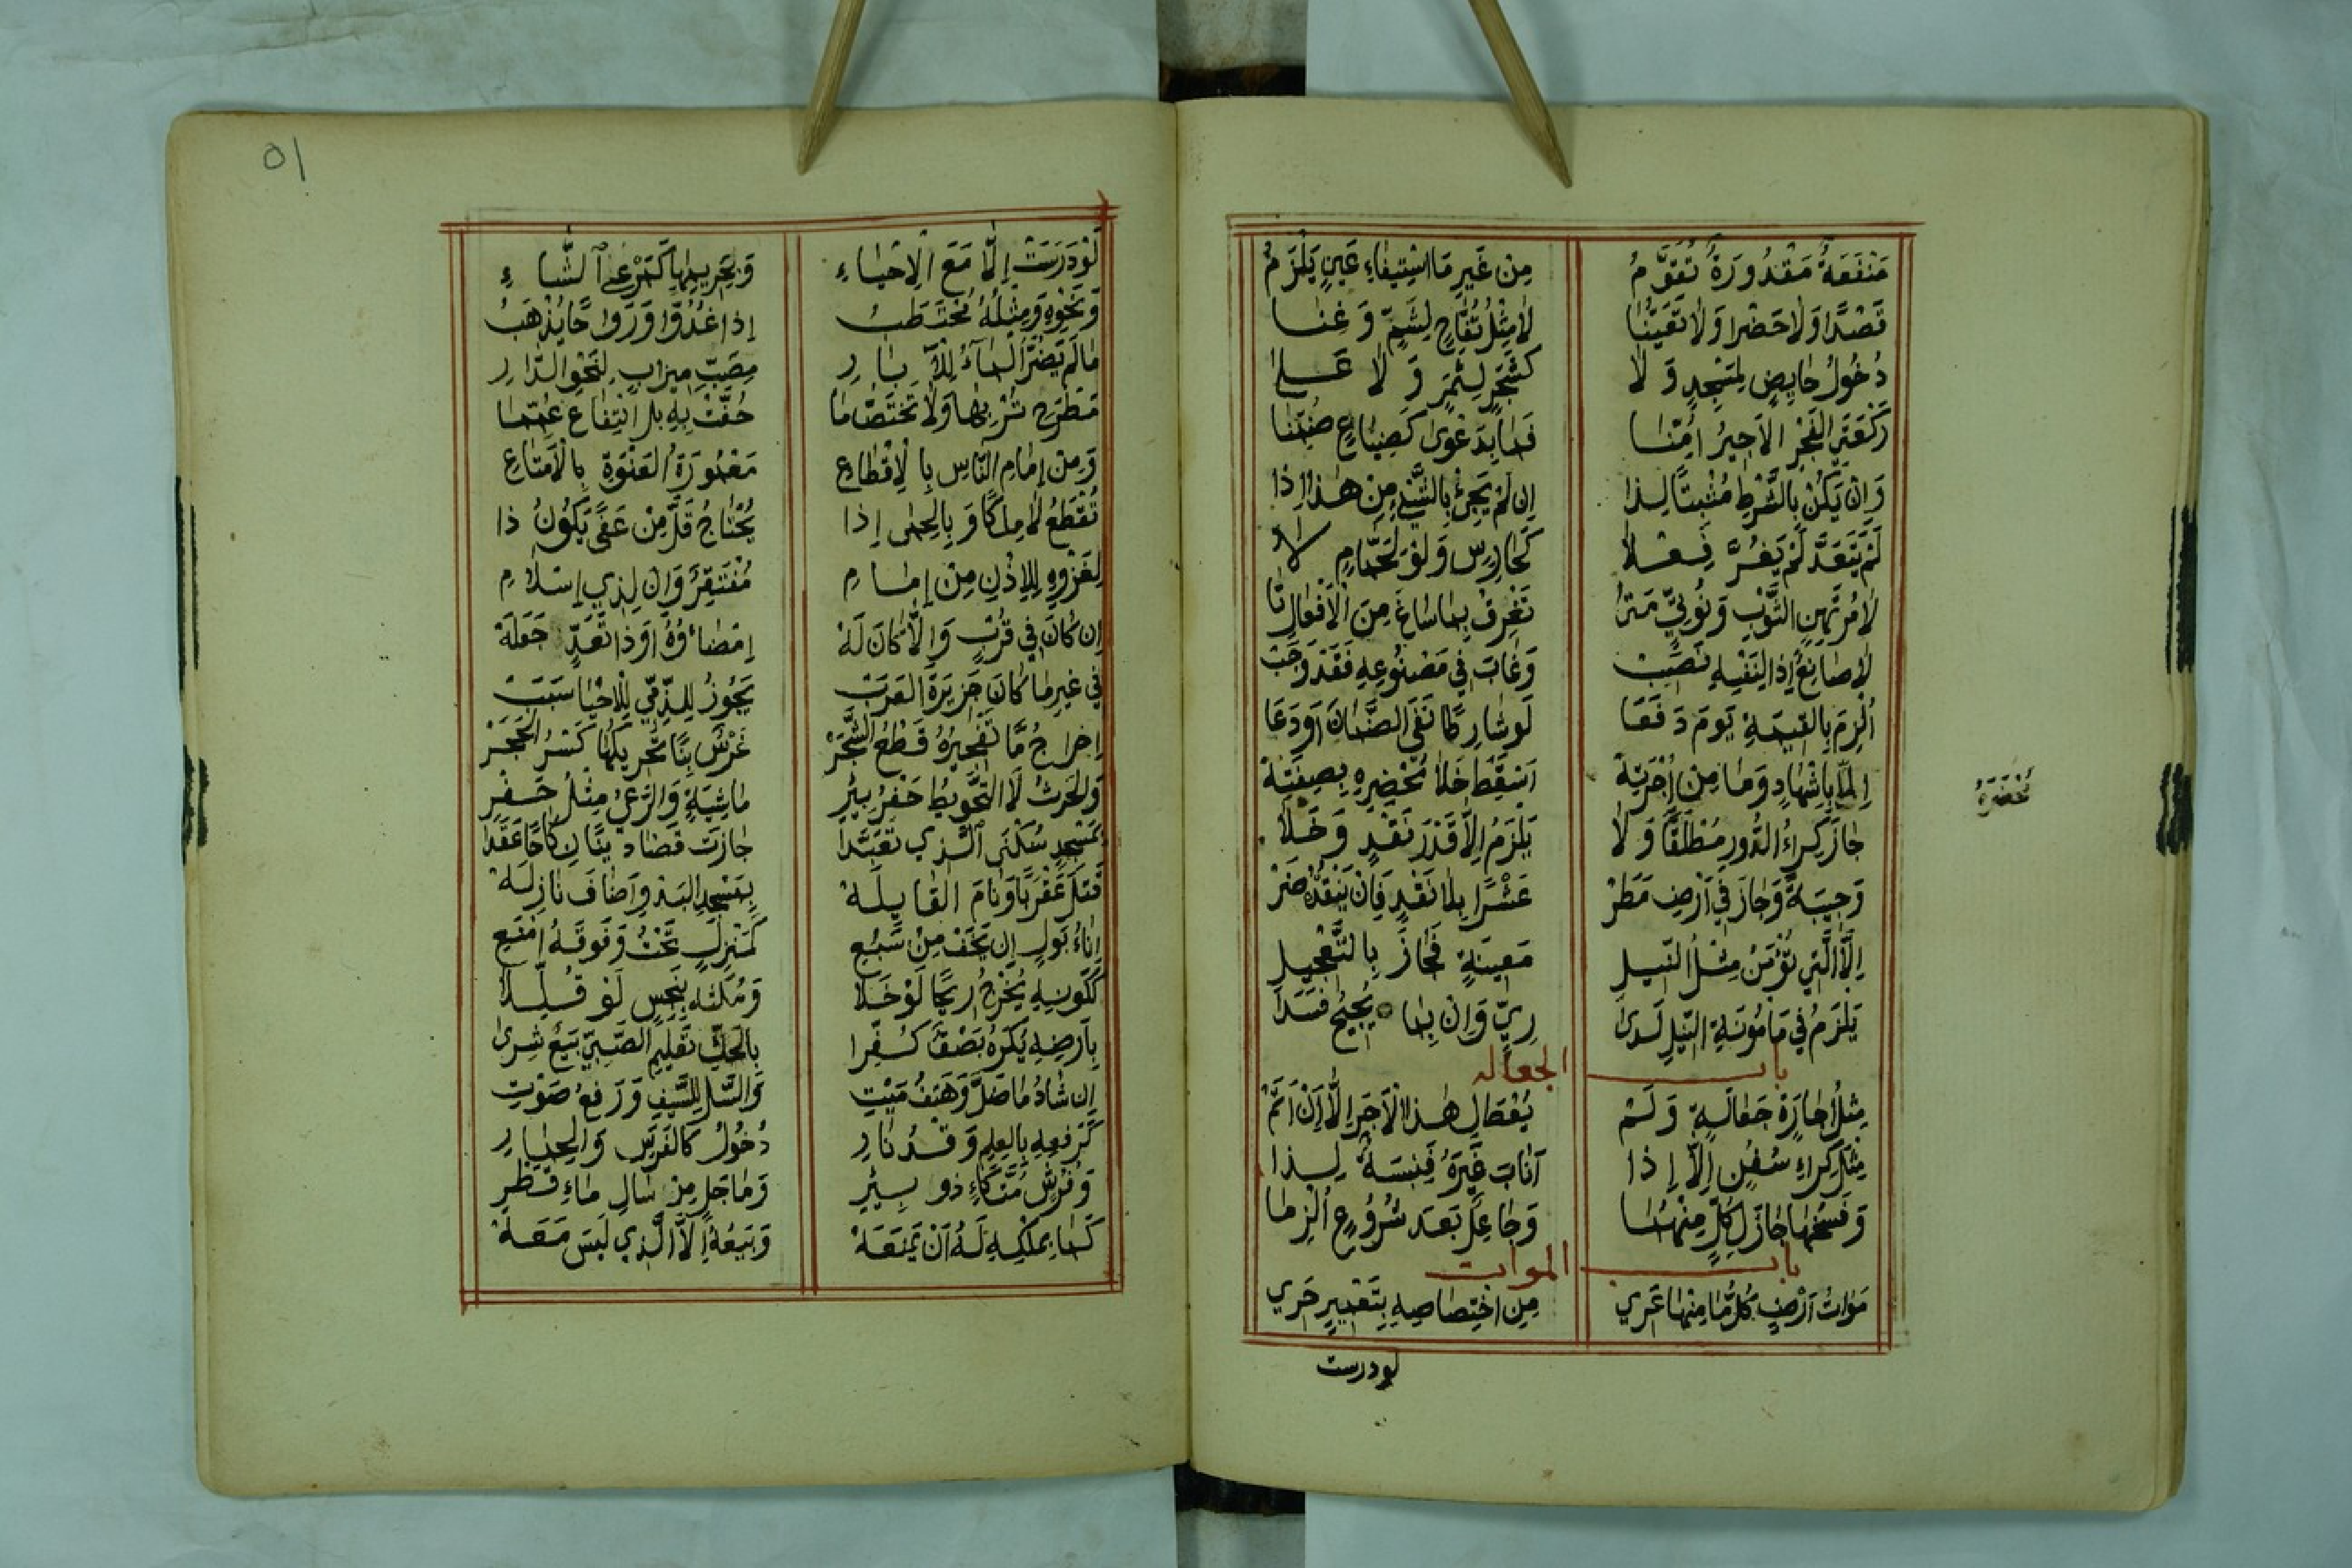 مَنْفَعَةٌ مَقْدُورَةٌ تُقَوَّمُ مِن غَيرِ مَا اسْتِيفَاءِ عَينٍ يَلْزَمُ
قَصْدًا وَلَا حَضْرا وَلَا تَعَيَّنَا لَا مِثْلُ تُفَّاحٍ لِشَمٍّ وَغِنَا
دُخُولُ حَايِضٍ لِمَسْجِدٍ وَلَا كَشَجَرٍ لِثَمَرٍ وَلَا عَلى
رَكْعَتَيِ الفَجْرِ الاَجِيرُ اُمِّنَا فَمَا بِدَعْوَى كَضِيَاعٍ ضُمِّنَا
وَاِنْ يَكُنْ بِالشَّرْطِ مُثْبِتًا لِذا اِن لَمْ يَجِئْ بِالشَّيْءِ مِنْ هٰذا اِذا
لَمْ يَتَعَدَّ لَمْ يَغُرَّ فِعْلَا كَحَارِسٍ وَلَوْ لِحَمَّامٍ لَا
لَا مُرْتَهِنِ الثَّوْبِ وَنُوتِيٍّ تَعْرِفُ بِمَا سَاغَ مِنَ الْاَفْعَالِ
لَا صَانِعٌ اِذَا لِنَفْسِهِ نَصَبْ وَغَابَ فِي مَصْنُوعِهِ فَقَدْ وَجَبْ
اُلْزِمَ بِالقِيمَةِ يَومَ دَفَعَا لَو شَارِكًا نَفَى الضَّمَانَ اَوْ دَعَا
اِلَّا بِاشْهَادٍ وَمَا مِنْ اُجْرَةْ اَسْقِطَ
جَازَ كِرَاءُ الدُّورِ مُطْلَقًا وَلَا يَلْزَمُ اِلَّا قَدْرَ نَقْدٍ وَخَلَا
وَجِيبَةً وَجَازَ فِي اَرْضِ مَطَرْ عَشْرًا بِلَا نَقْدٍ فَاِنْ يَنْقُدْ ضَرْ
اِلَّا الَّتِي تُؤْمَنُ مِثْلُ النِّيلِ مَعِينَةٍ فَجَازَ بِالتَّعْجِيلِ
يَلْزَمُ فِي مَأْمُونَةِ النِّيلِ لَدَى رِيٍّ وَاِنْ بِمَا يُجِيحُ فَسَدَا
باب الجعاله
مِثْلُ اِجَارَةٍ جَعَالَةٍ وَلَمْ يُعْطَا لِهٰذا الْاَجرَ اِلَّا اِنْ اَتَمّْ
مِثْلَ كِرَاءِ سُفُنٍ اِلَّا اِذا اَنَابَ غَيْرَهُ فَنِسْبَةٌ لِذا
وَفَسْخُهَا جَازَ لِكُلٍّ مِنْهُمَا وَجَاعِلٌ بَعْدَ شُرُوعٍ اُلْزِمَا
باب الموات
مَوَاتُ اَرْضٍ كُلُّ مَا مِنْهَا عَرِي مِنِ اخْتِصَاصِهِ بِتَعْمِيرٍ حَرِي
لودرست
٥١
لَوْ دَرَسَتْ اِلَّا مَعَ الْاِحْيَاءِ وَبِحَرِيمِهَا كَمَرْعَى الشَّاءِ
وَنَحْوِهِ وَمِثْلُهُ مُحْتَطَبُ اِذا غُدُوًّا وَرَوَاحًا يُذْهَبُ
مَا لَم يَضُرَّ الْمَاءُ لِلْاَبَارِ مِصَبِّ مِيزَابٍ لِنَحْوِ الدَّارِ
مَطْرَحِ تُرْبِهَا وَلَا تَخْتَصُّ مَا حُفَّتْ بِهِ بَلِ انْتِفَاعٌ عُمِّمَا
وَمِن اِمَامِ النَّاسِ بِالْاِقْطَاعِ مَعْمُورَةُ العَنْوَةِ بِالْاَمْتَاعِ
تُقْطَعُ لَا مِلْكًا وَبِالحِمَى اِذا يُحْتَاجُ قَلَّ مِنْ عَفًى يَكُونُ ذا
لِغَزْوِهِ لِلاِذْنِ مِنْ اِمَامِ مُفْتَقِرٌ وَاِنْ لِذِي اِسْلَامِ
اِن كَانَ فِي قُرْبٍ وَاِلَّا كَانَ لَهْ اِمْضَاؤُهُ اَوْ ذَا تَعَدٍّ جَعَلَهْ
فِي غَيرِ مَا كَانَ جَزِيرَةَ العَرَبْ يَجُوزُ لِلذِّمِّي لِلْاِحْيَا سَبَبْ
اِخْرَاجُ مَا تَفْجِيرُهُ قَطْعُ الشَّجَرْ غَرْسٌ بِنًا تَحْرِيكُهَا كَسْرُ الحَجَرْ
وَالحَرْثُ لَا التَّحْوِيطُ حَفْرُ بِئْرِ مَاشِيَةٍ وَالرَّعْيُ مِثْلُ حَفْرِ
بِمَسْجِدٍ سُكْنَى الَّذِي تَعَبَّدَا جَازَت قَضَا دَينًا نِكَاحًا عَقَدَا
قَتْلَ عَقْرَبًا وَنَامَ القَايِلَهْ بِمَسْجِدِ البَدْوِ اَضَافَ نَازِلَهْ
اِنَاءُ بَولٍ اِن يَخَفْ مِنْ سَبُعِ كَمَنْزِلٍ تَحْتُ وَفَوقَهُ امْنَعِ
كَكَونِهِ يُخْرِجُ رِيحًا لَوْ خَلَا وَمُكْثُهُ بِنَجِسٍ لَوْ قُلِّلَا
بِاَرْضِهِ يُكْرَهُ بَصْقًا كُفِّرَا بِالحَكِّ تَعْلِيمِ الصَّبِيِّ بَيْعُ شِرَى
اِن شَادُ مَا ضَلَّ وَهَتْفُ مَيْتِ وَالسَّلِّ لِلسَّيفِ وَرَفعُ صَوْتِ
كَرَفْعِهِ بِالعِلْمِ وَقْدُ نَارِ دُخُولُ كَالفَرَسِ وَالحِمَارِ
وَفُرْشُ مُتَّكَاءِ ذُو بِيئْرِ وَمَاجَلٍ مِنْ سَالِ مَاءِ قَطْرِ
كَمَا بِمِلْكِهِ لَهُ اَنْ يَمْنَعَهْ وَبَيعُهُ اِلَّا الَّذِي لَيسَ مَعَهْ